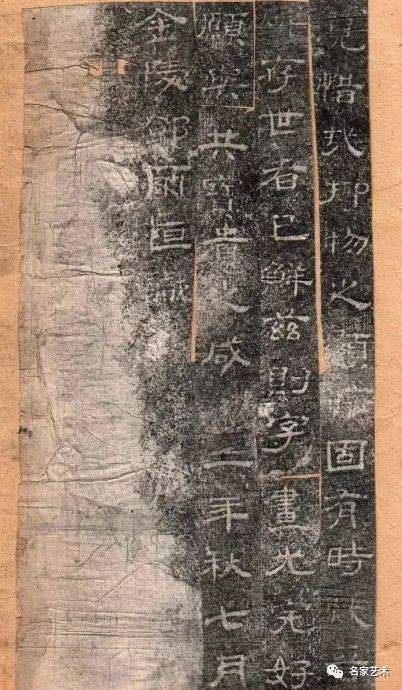 見惜哉抑物之顯固有時
存世者已鮮茲則字畫尤完好
願與共寶貴之咸二年秋七月
金陵鄧爾恒識
名家艺术